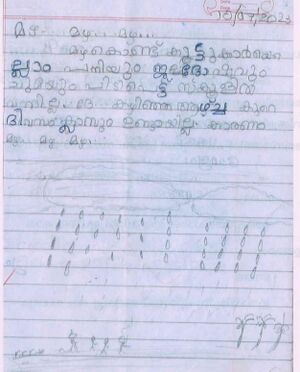 10/07/2023
മഴ... മഴ... മഴ...
മഴകൊണ്ട് കൂട്ടുകാർയെ
ല്ലാം പനിയും ജലദോഷവും
ചുമയും പിടിപെട്ട് സ്കൂളിൽ
വന്നില്ല. കഴിഞ്ഞ ആഴ്ച കുറെ
ദിവസം ക്ലാസും ഉണ്ടായില്ല. കാരണം
മഴ മഴ മഴ...